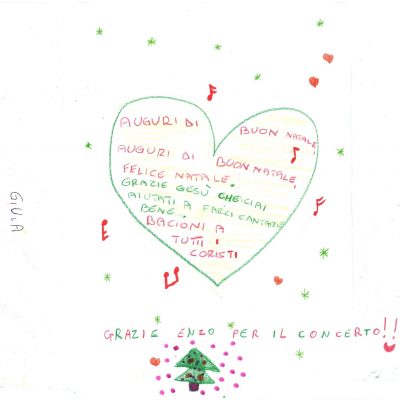 AUGURI DI BUON NATALE,
AUGURI DI BUON NATALE,
FELICE NATALE.
GRAZIE GESÙ CHE CIAI
AIUTATI A FARCI CANTARE
BENE.
BACIONI A
TUTTI I
CORISTI
GRAZIE ENZO PER IL CONCERTO!!